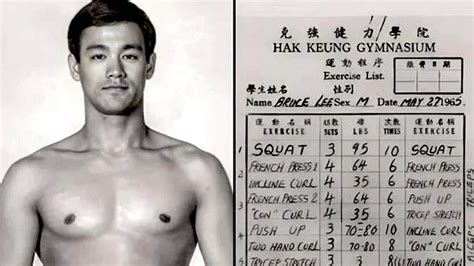 克強健力學院
HAK KEUNG GYMNASIUM
運動程序
Exercise List.
繳費日期
學生姓名 性別
Name BRUCE LEE Sex M Date MAY 27 1965
運動名稱 組數 磅數 次數 運動名稱
EXERCISE SETS LBS TIMES EXERCISE
1 SQUAT 3 95 10 SQUAT
2 FRENCH PRESS 1 4 64 6 FRENCH PRESS
3 INCLINE CURL 4 35 6 INCLINE CURL
4 FRENCH PRESS 2 4 64 6 PUSH UP
5 "CON" CURL 4 35 6 TRICEP STRETCH
PUSH UP 3 70-80 10 INCLINE CURL
TWO HAND CURL 3 70-80 8 "CON" CURL
TRICEP STRETCH 3 3 6 TWO HAND CURL